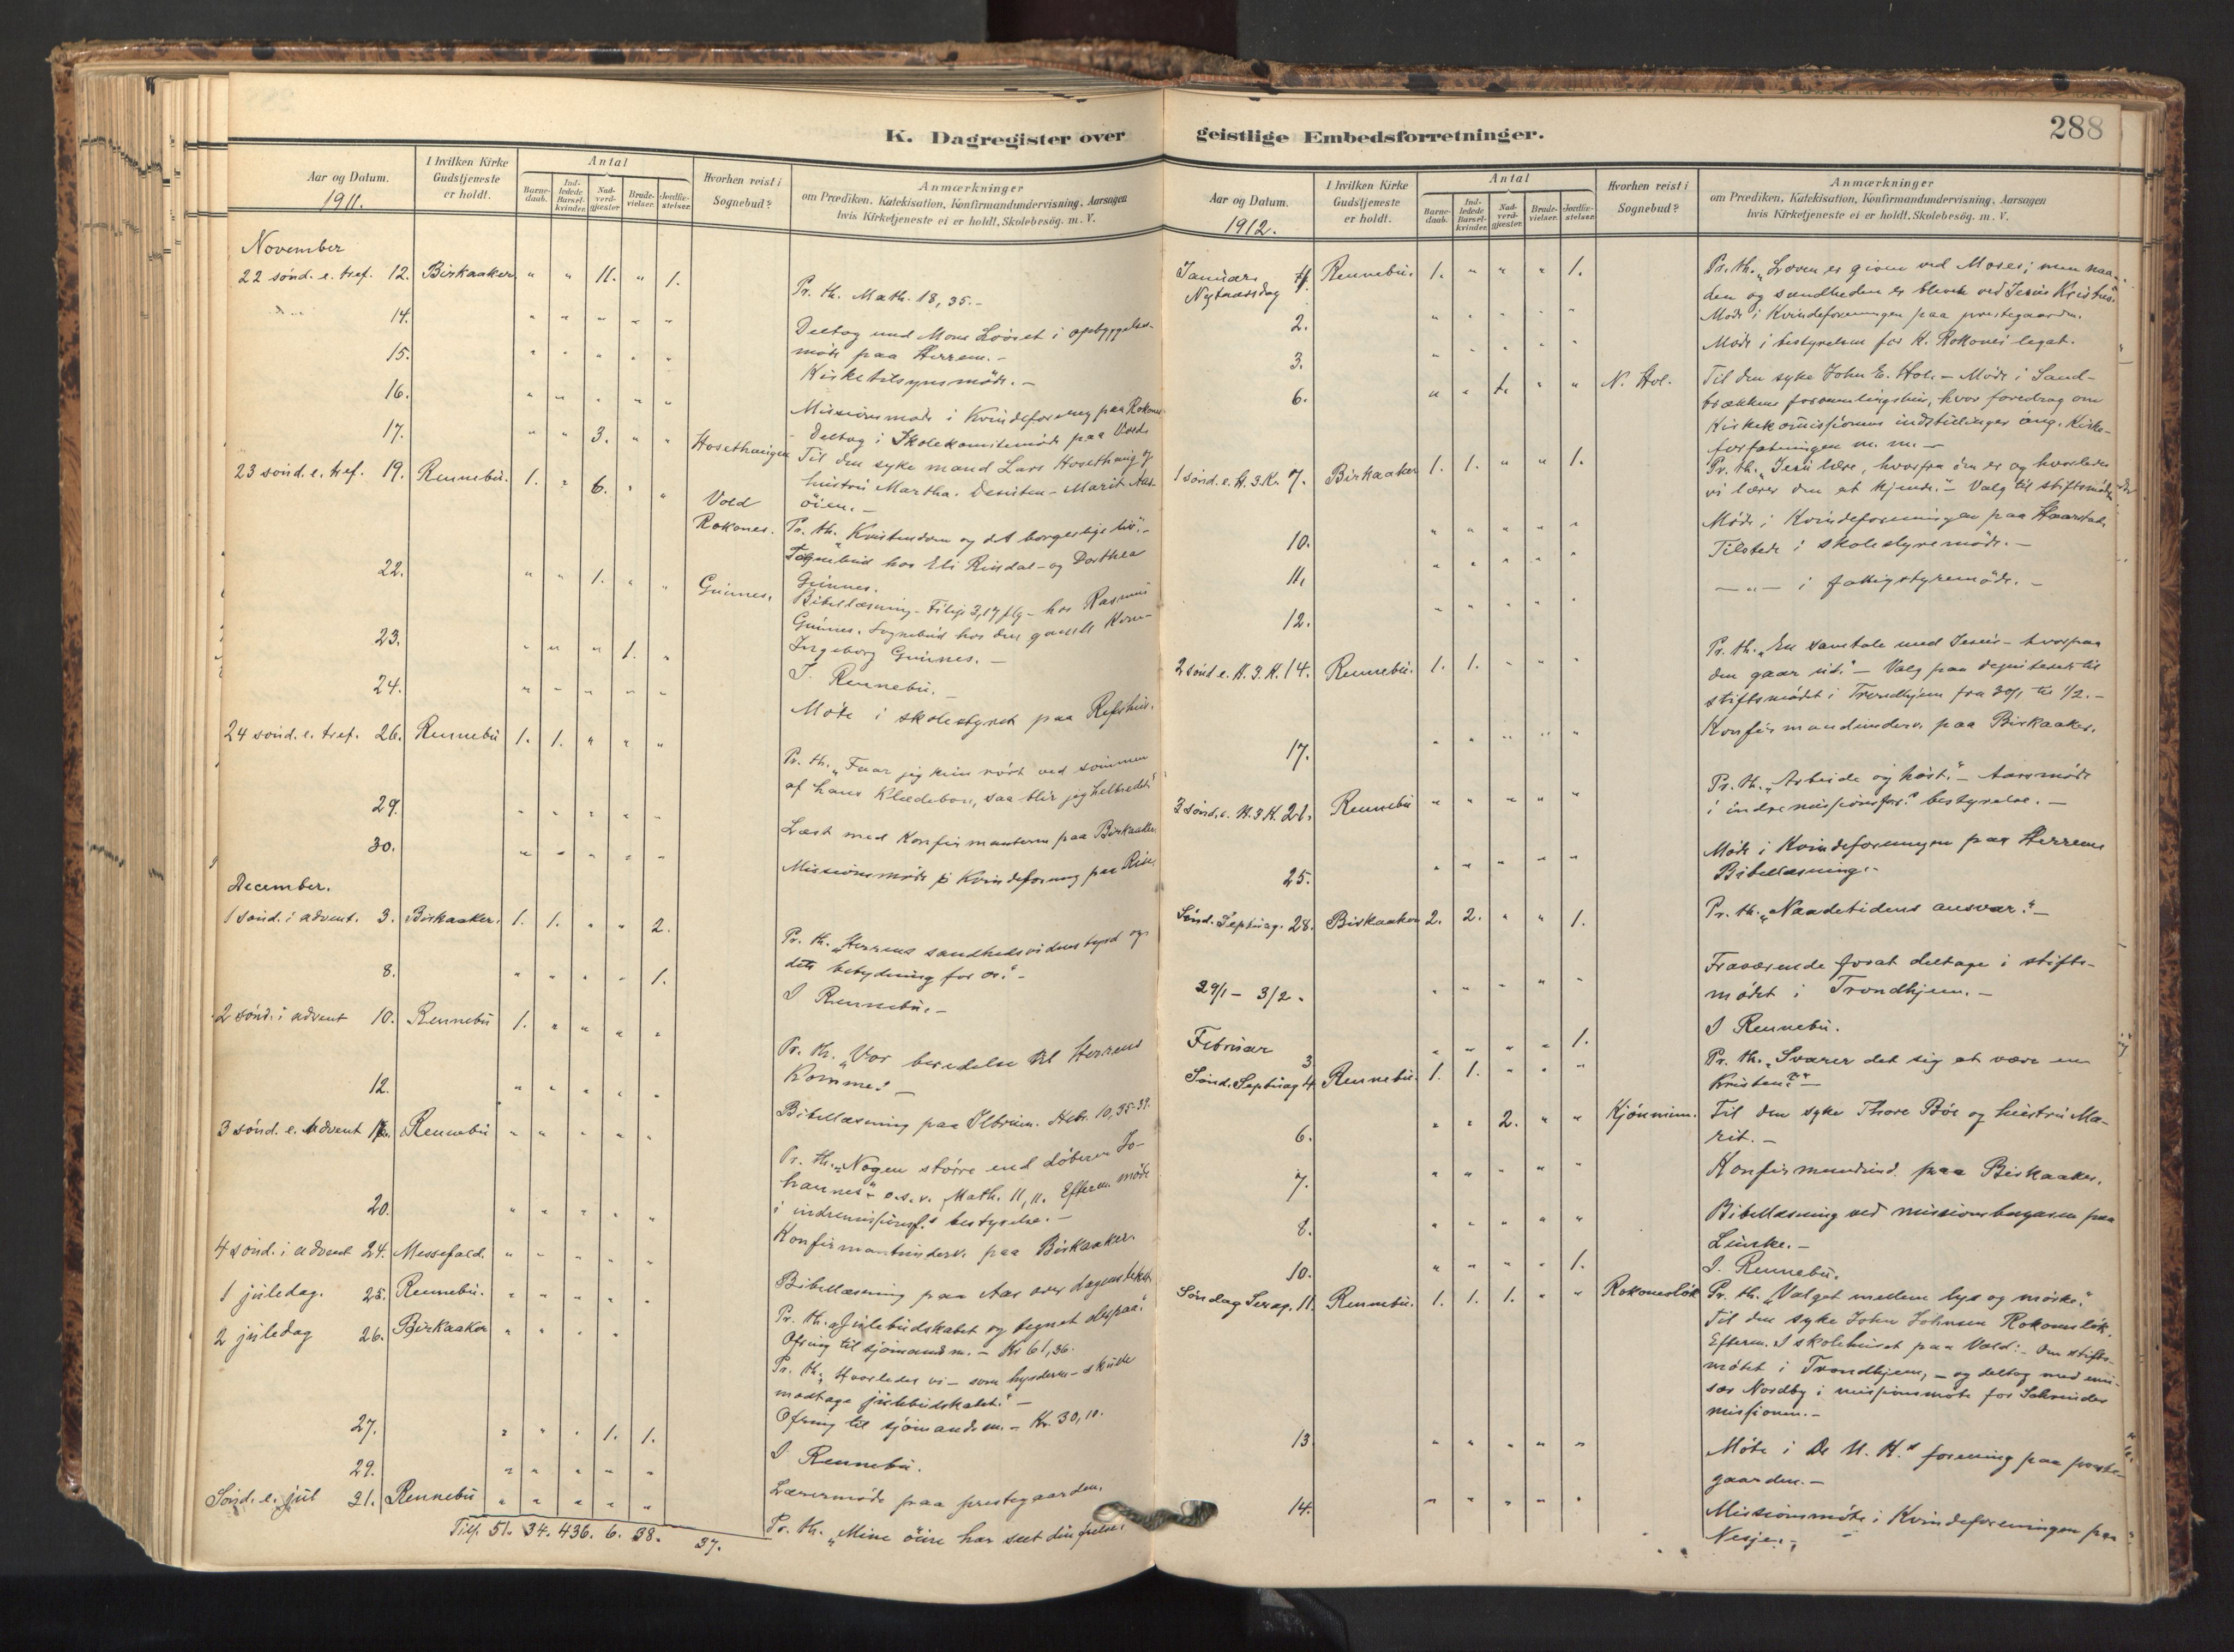 288
K. Dagregister over
Aar og Datum.
1911.
I hvilken Kirke
Gudstjeneste
er holdt.
Antal
Barne-
daab.
Ind-
ledede
Barsel-
kvinder.
Nad-
verd-
gjæster.
Brude-
vielser.
Jordfæ-
stelser.
Hvorhen reist i
Sognebud?
Anmærkninger
om Prædiken, Katekisation, Konfirmandundervisning, Aarsagen
hvis Kirketjeneste ei er holdt, Skolebesøg. m. V.
November
22 sønd. e. tref. 12. Birkaaker " " 11. " 1. Pr. th. Math. 18, 35.-
14. " " " " " Deltog med Mons i opbyggelses-
møte paa Herrem.-
15. " " " " " Kirketilsynsmøde.-
16. " " " " " Missionsmøde i Kvindeforening paa
- Deltog i Skolekomitemøde paa Vold
17. " " 3. " " Hosethaugen Til den syke mand Lars Hosethaug og
hustru Martha.
øien.-
23 sønd. e. tref. 19. Rennebu. 1. " 6. " " Vold
Rokones. Pr. th. "Kristendom og det borgerlige liv".-
Sognebud hos Eli Rindal- og Dorthea
Gunnes.
22. " " 1. " " Gunnes. Bibellæsning- Filip 3,17 flg- hos Rasmus
Gunnes. Sognebud hos den gamle Kone-
Ingeborg Gunnes.-
23. " " " 1. " I Rennebu.-
24. " " " " " Møte i skolestyret paa Refshus.
24 sønd. e. tref. 26. Rennebu 1. 1. " " " Pr. th. "Faar jeg kun rørt ved sømmen
af hans Klædebon, saa blir jeg helbredet"
29. " " " " " Læst med Konfirmanterne paa Birkaaker.
30. " " " " " Missionsmøde i Kvindeforening paa Rise.
December.
1 sønd. i advent. 3. Birkaaker. 1. 1. " " 2. Pr. th. "Herrens sandhedsvidnesbyrd og
dets betydning for os".-
8. " " " " 1. I Rennebu.-
2 sønd. i advent 10. Rennebu 1. " " " " Pr. th. "Vor beredelse til Herrens
Komme".-
12. " " " " " Bibellæsning paa Ilbrun. Hebr. 10, 35-39.
3 sønd. e. advent 17. Rennebu " " " " " Pr. th. "Nogen større end døberen Jo-
hannes" o.s.v. Math. 11, 11. Efterm. møde
i indremissionsf.s bestyrelse.-
20. " " " " " Konfirmantunderv. paa Birkaaker.
4 sønd. i advent 24. Messefald. " " " " " Bibellæsning paa Aas over dagens tekst
1 juledag. 25. Rennebu. " " " " " Pr. th. "Julebudskabet og tegnet derpaa".
Ofring til sjømandsm.- Kr 61,36.
2 juledag 26. Birkaaker " " " " Pr. th. "Hvorledes vi- som hyrderne- skulde
modtage julebudskabet".-
Ofring til sjømandsm.- Kr. 30,10.
27. " " " 1. 1. I Rennebu.
29. " " " " " Lærermøde paa prestegaarden.
Sønd. e. jul 31. Rennebu " " " " " Pr. th. "Mine øine har seet din frelse"
Tils. 51. 34. 436. 6. 38. 37.
geistlige Embedsforretninger.
Aar og Datum.
1912.
I hvilken Kirke
Gudstjeneste
er holdt.
Antal
Barne-
daab.
Ind-
ledede
Barsel-
kvinder.
Nad-
verd-
gjæster.
Brude-
vielser.
Jordfæ-
stelser.
Hvorhen reist i
Sognebud?
Anmærkninger
om Prædiken, Katekisation, Konfirmandundervisning, Aarsagen
hvis Kirketjeneste ei er holdt, Skolebesøg. m. V.
Januar
Nytaarsdag 1. Rennebu. 1. " " " 1. Pr. th. "Loven er given ved Moses; men naa-
den og sandheden er bleven ved Jesus Kristus"
2. " " " " " Møde i Kvindeforeningen paa prestegaarden.
3. " " " " " Møde i bestyrelsen for K. Rokones legat.
6. " " 1. " " N. Hol. Til den syke John E. Hol.- Møde i Sand-
brækkens forsamlingshus, hvor foredrag om
Kirkekommissionens indstillinger ang. Kirke-
forfatningen m. m.-
1 sønd. e. H. 3. K. 7. Birkaaker 1. 1. " " 1. Pr. th. "Jesu lære, hvorfra den er og hvorledes
vi lærer den at kjende".- Valg til stiftsmødet
10. " " " " " Møde i Kvindeforeningen paa Haarstad.
11. " " " " " Tilstede i skolestyremøde.-
12. " " " " " -"- i fattigstyremøde.-
2 sønd e. H. 3. K. 14. Rennebu. 1. 1. " " " Pr. th. "En samtale med Jesus- hvorpaa
den gaar ut".- Valg paa deputerede til
stiftsmødet i Trondhjem fra 30/1 til 1/2.-
17. " " " " " Konfirmandunderv. paa Birkaaker.
3 sønd. e. H. 3 K. 21. Rennebu " " " " " Pr. th. "Arbeide og høst".- Aarsmøde
i indremissionsfor.s bestyrelse.-
25. " " " " " Møde i Kvindeforeningen paa Herrem
Bibellæsning.-
Sønd. Septuag. 28. Birkaaker 2. 2. " " 1. Pr. th. "Naadetidens ansvar".-
29/1 - 3/2. " " " " " Fraværende forat deltage i stifts-
mødet i Trondhjem.-
Februar
3 " " " " 1. I Rennebu.
Sønd. Septuag 4. Rennebu. 1. 1. " " " Pr. th. "Svarer det sig at være en
Kristen?"-
6. " " 2. " " Kjønnim. Til den syke Thore Bøe og hustru Ma-
rit.-
7. " " " " " Konfirmandund. paa Birkaaker.
8. " " " " " Bibellæsning ved missionsbazaren paa
10. " " " " 1. I Rennebu.
Søndag Sexag. 11. Rennebu. 1. 1. 1. " " Rokonesløk Pr. th. "Valget mellem lys og mørke".
Til den syke John Johnsen Rokonesløk.
Efterm. I skolehuset paa Vold:- Om stifts-
møtet i Trondhjem,- og deltog med emis-
sær Nordby i missionsmøte for
missionen.-
13. " " " " " Møte i De U. K.s forening paa preste-
gaarden.-
14. " " " " " Missionsmøte i Kvindeforeningen paa
Nesje.-